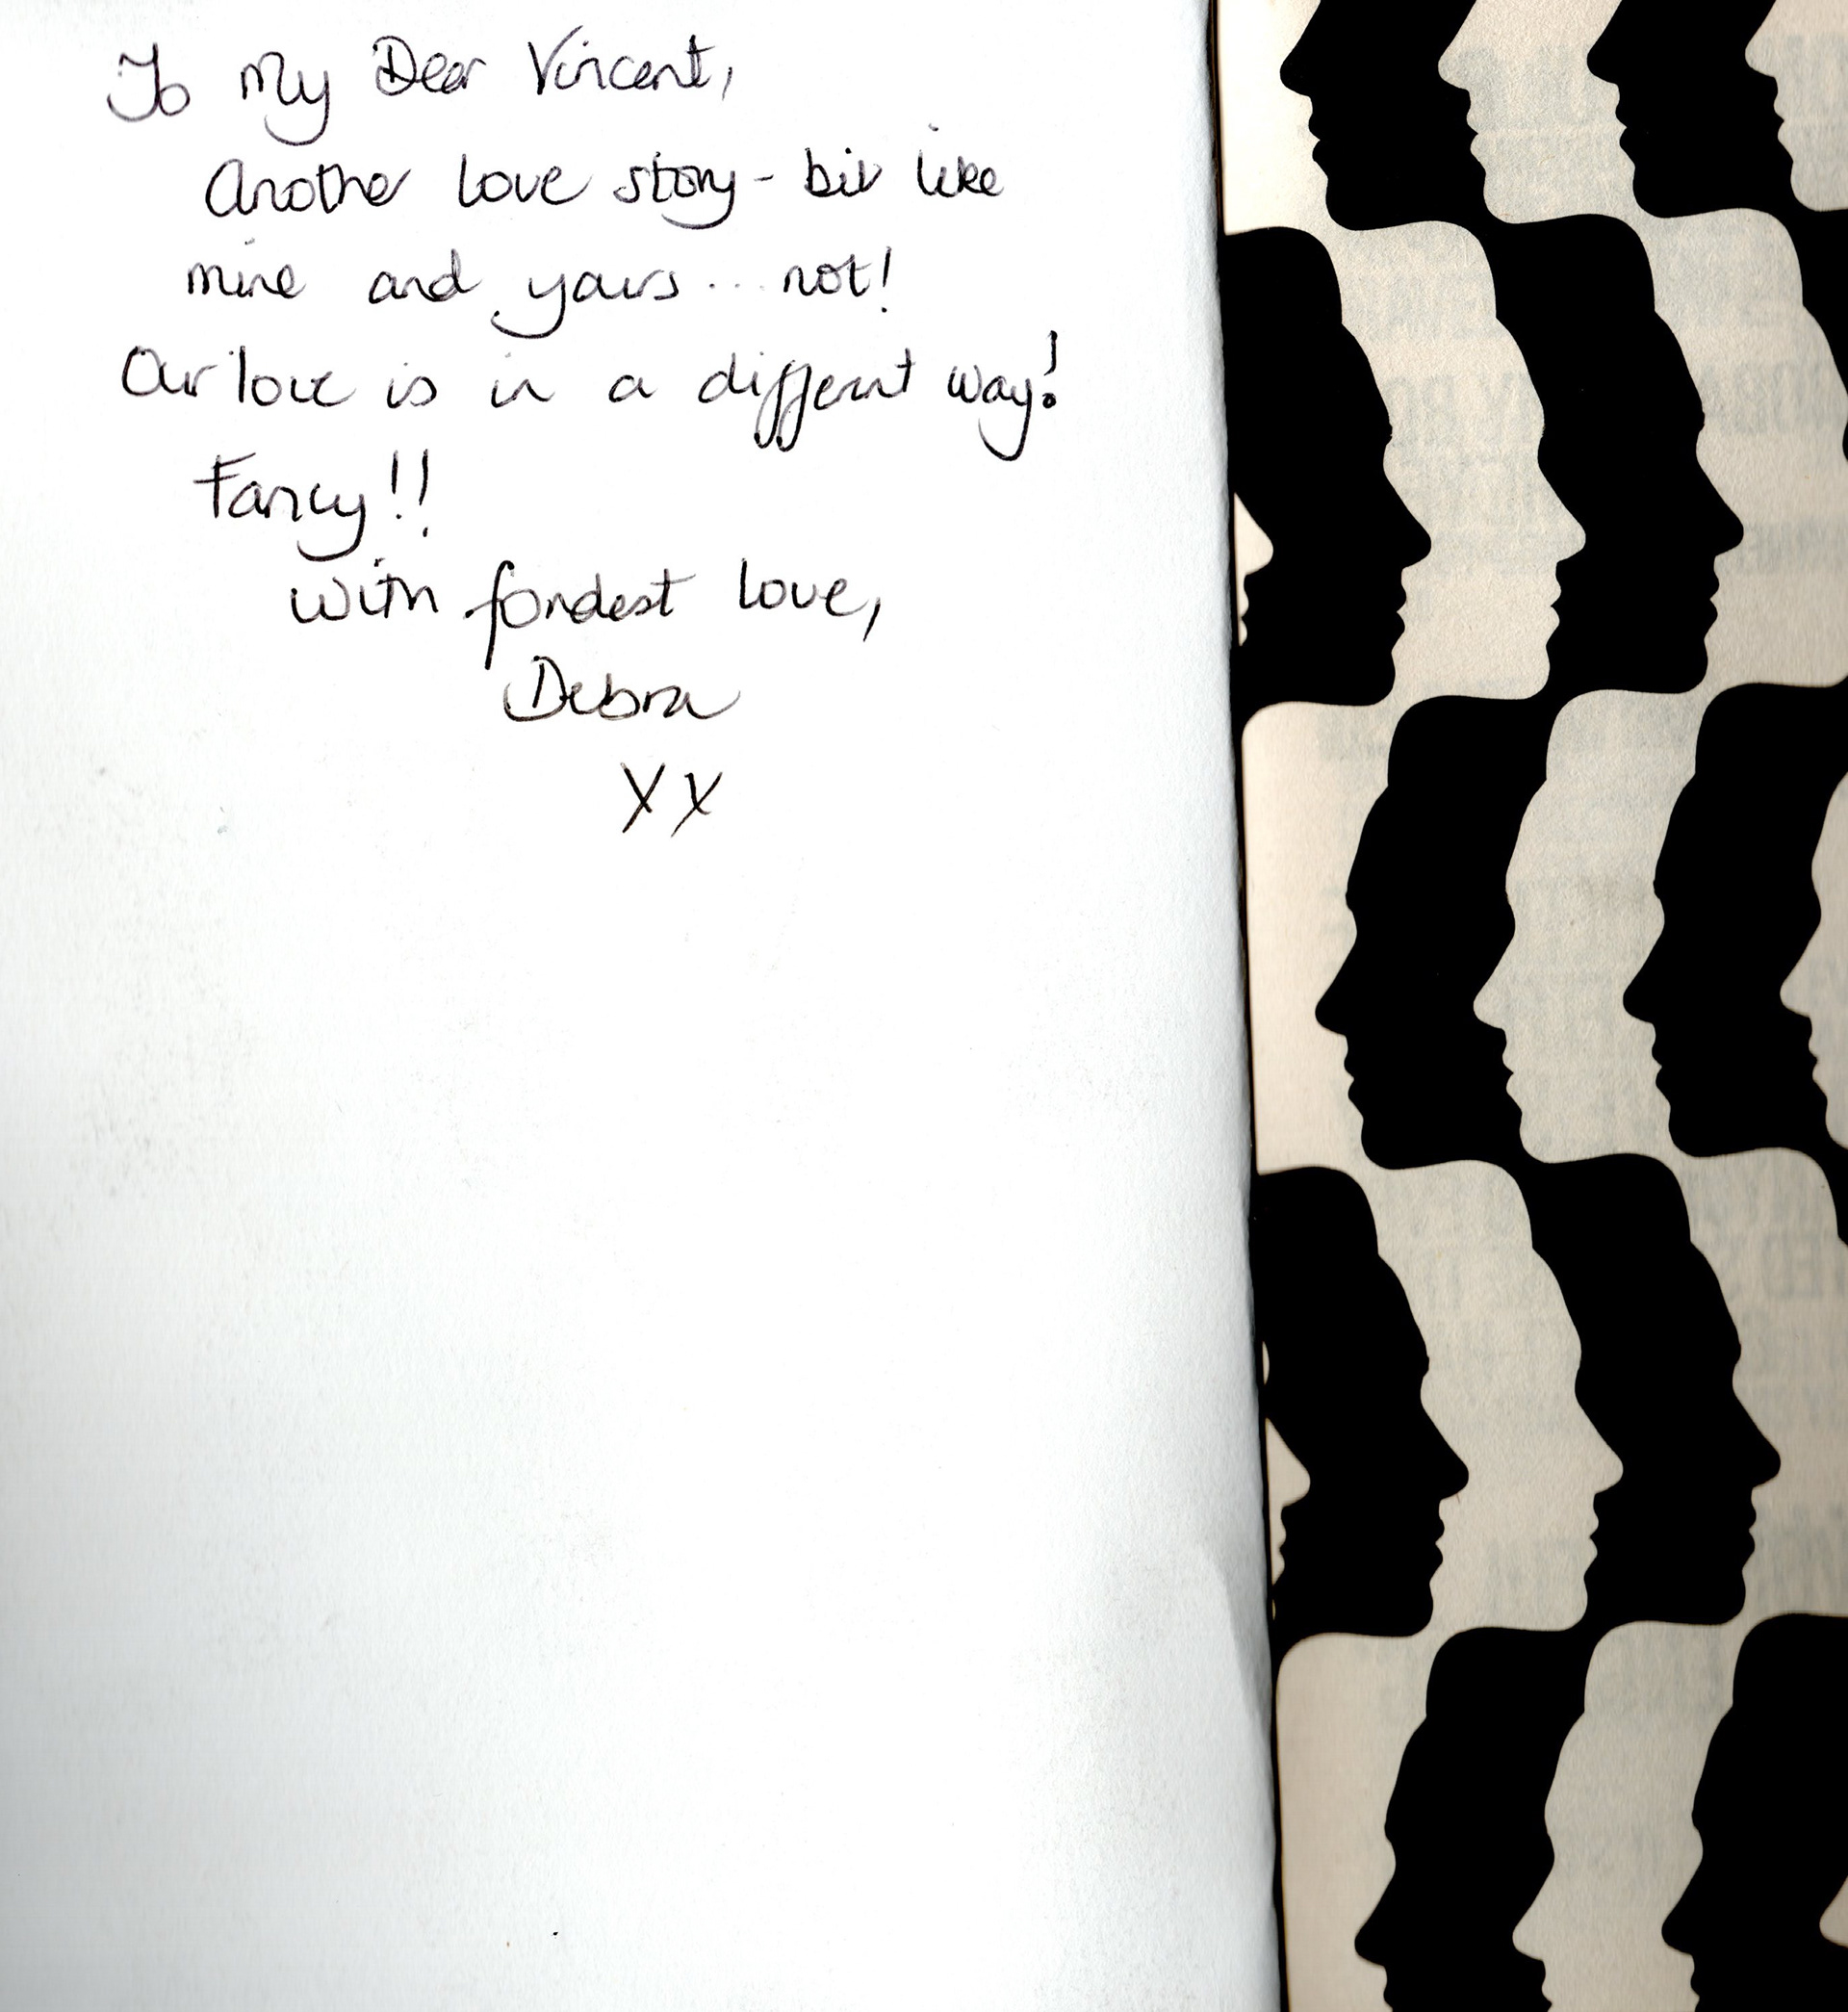 To My Dear Vincent,
Another love story - bit like
mine and yours... not!
Our love is in a different way!
Fancy!!
With fondest love,
Debra
XX